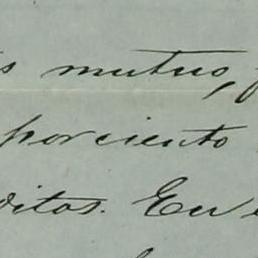 s mutuo,
por ciento
ditos. En